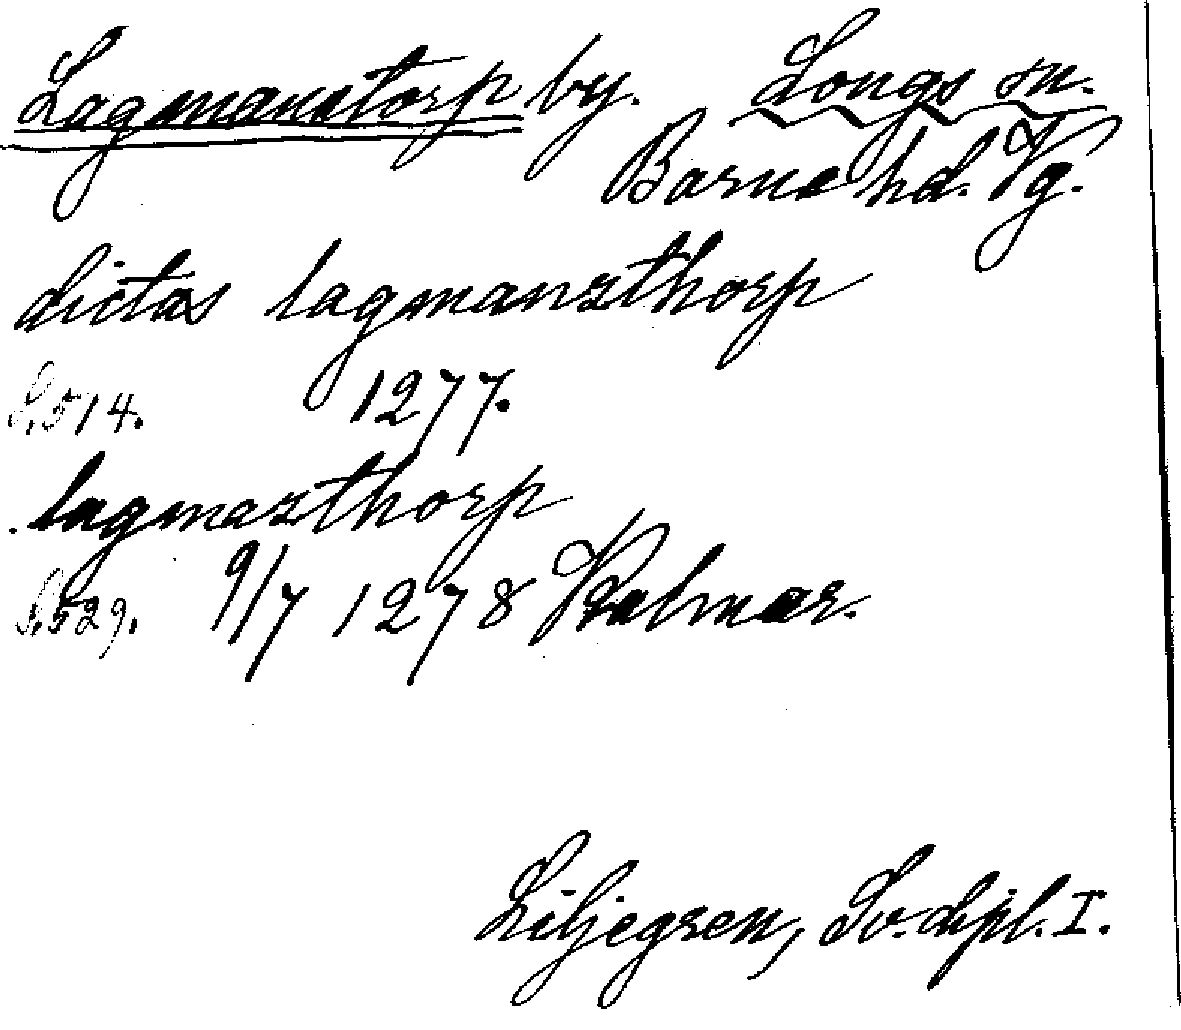 Lagmanstorp by. Longs sn.
Barne hd. Vg.
dictas lagmanzthorp
S. 514. 1277.
lagmazthorp
S. 529. 9/7 1278 Kalmar.
Liljegren, Sv. dipl. I.